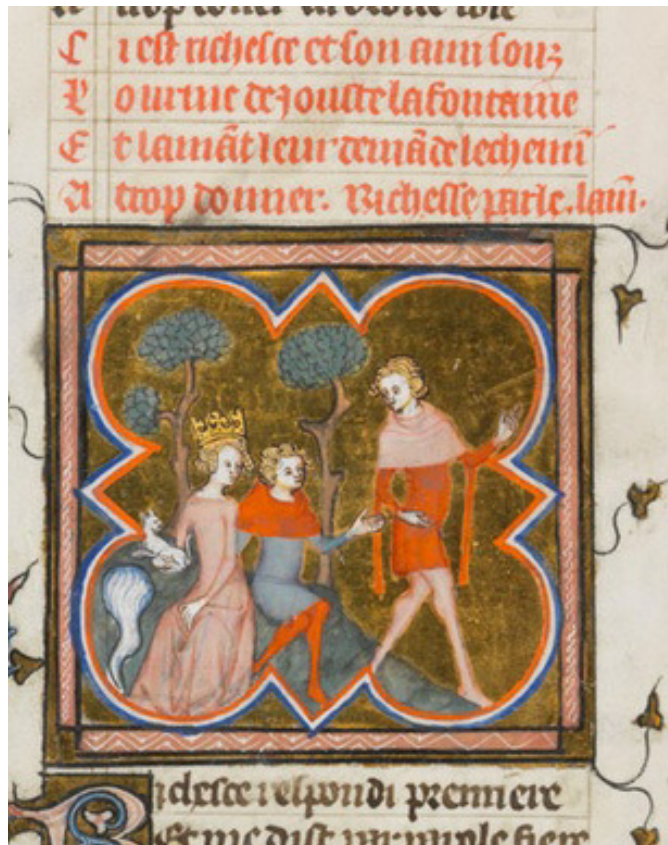 C i est richesce et son ami souz
P our une dejouste la fontaine
E t lamãt leur demãde le chemĩ
A trop donner. Richesse parle. lam̃.
ichesce respondi premiere
Et me dist par parole fiere